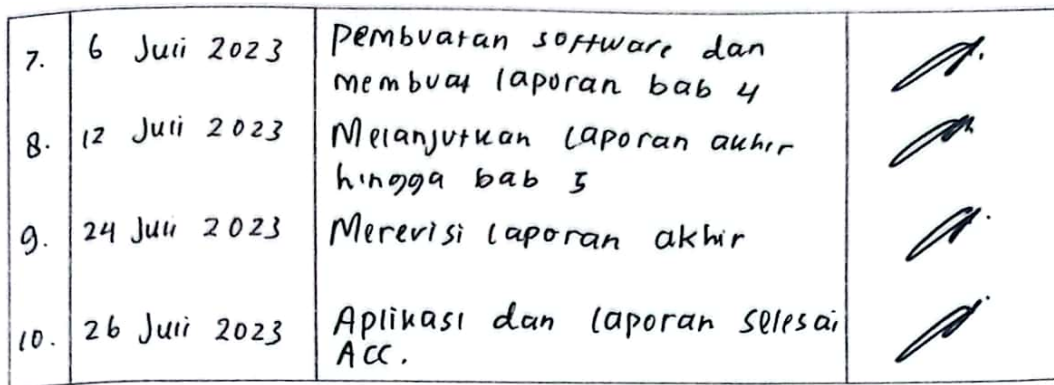 7. 6 Juli 2023 pembuatan software dan
membuat laporan bab 4
8. 12 Juli 2023 Melanjutkan laporan akhir
hingga bab 5
9. 24 Juli 2023 Merevisi laporan akhir
10. 26 Juli 2023 Aplikasi dan laporan selesai
ACC.